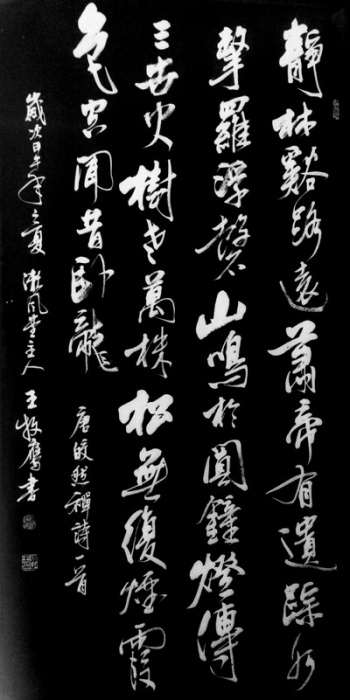 靜林谿路遠蕭帝有遺踪水
擊羅浮磬山鳴於闐鐘燈傳
三世火樹老萬株松無復煙霞
色空聞昔卧龍
唐皎然禪詩一首
歲次甲午年之夏漱風堂主人王牧鷹書